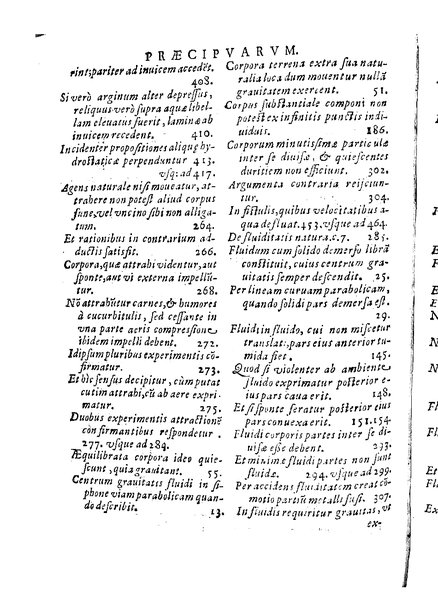 PRÆCIPVARVM.
rint; pariter ad inuicem accedēt.
408.
Si verò arginum alter depressus,
reliquus verò supra aquæ libel-
lam eleuatus fuerit, laminæ ab
inuicem recedent. 410.
Incidenter propositiones aliquę hy-
drostaticæ perpenduntur 413.
vsq; ad 417.
Agens naturale nisi moueatur, at-
trahere non potest aliud corpus
fune, vel vncino sibi non alliga-
tum. 264.
Et rationibus in contrarium ad-
ductis satisfit. 266.
Corpora, quæ attrahi videntur, aut
sponte, aut vi externa impellū-
tur. 268.
Nō attrahūtur carnes, & humores
à cucurbitulis, sed cessante in
vna parte aeris compressione
ibidem impelli debent. 272.
Id ipsum pluribus experimentis cō-
firmatur. 273.
Et hìc sensus decipitur, cùm putat
cutim attrahi, cū ab aere expri-
matur. 275.
Duobus experimentis attractionē
confirmantibus respondetur.
277. vsque ad 284.
Æquilibrata corpora ideo quie-
scunt, quia grauitant. 55.
Centrum grauitatis fluidi in si-
phone viam parabolicam quan-
do describit. 13.
Corpora terrena extra sua natu-
ralia loca dum mouentur nullā
grauitatem exercent. 51.
Corpus substantiale componi non
potest ex infinitis punctis indi-
uiduis. 186.
Corporum minutissimæ particulæ
inter se diuisæ, & quiescentes
duritiem non efficiunt. 302.
Argumenta contraria reijciun-
tur. 304.
In fistulis, quibus velocitatibus a-
qua defluat. 453. vsque ad 464.
De fluiditatis natura, c. 7. 285.
Fluidum cum solido demerso librā
constituit, cuius centrum gra-
uitatis semper descendit. 25.
Per lineam curuam parabolicam,
quando solidi pars demersa est.
29.
Fluidi, in fluido, cui non miscetur
translati, pars eius anterior tu-
mida fiet. 145.
Quod si violenter ab ambiente
fluido exprimatur posterior e-
ius pars caua erit. 148.
Et si sponte feratur posterior eius
pars conuexa erit. 151. 154.
Fluidi corporis partes inter se di-
uisæ esse debent. 293.
Et minimæ fluidi partes non sunt
fluidæ. 294. vsque ad 299.
Per accidens fluiditatem creat cō-
motio partiū metalli fusi. 307.
In fluidis requiritur grauitas, vt
ex-